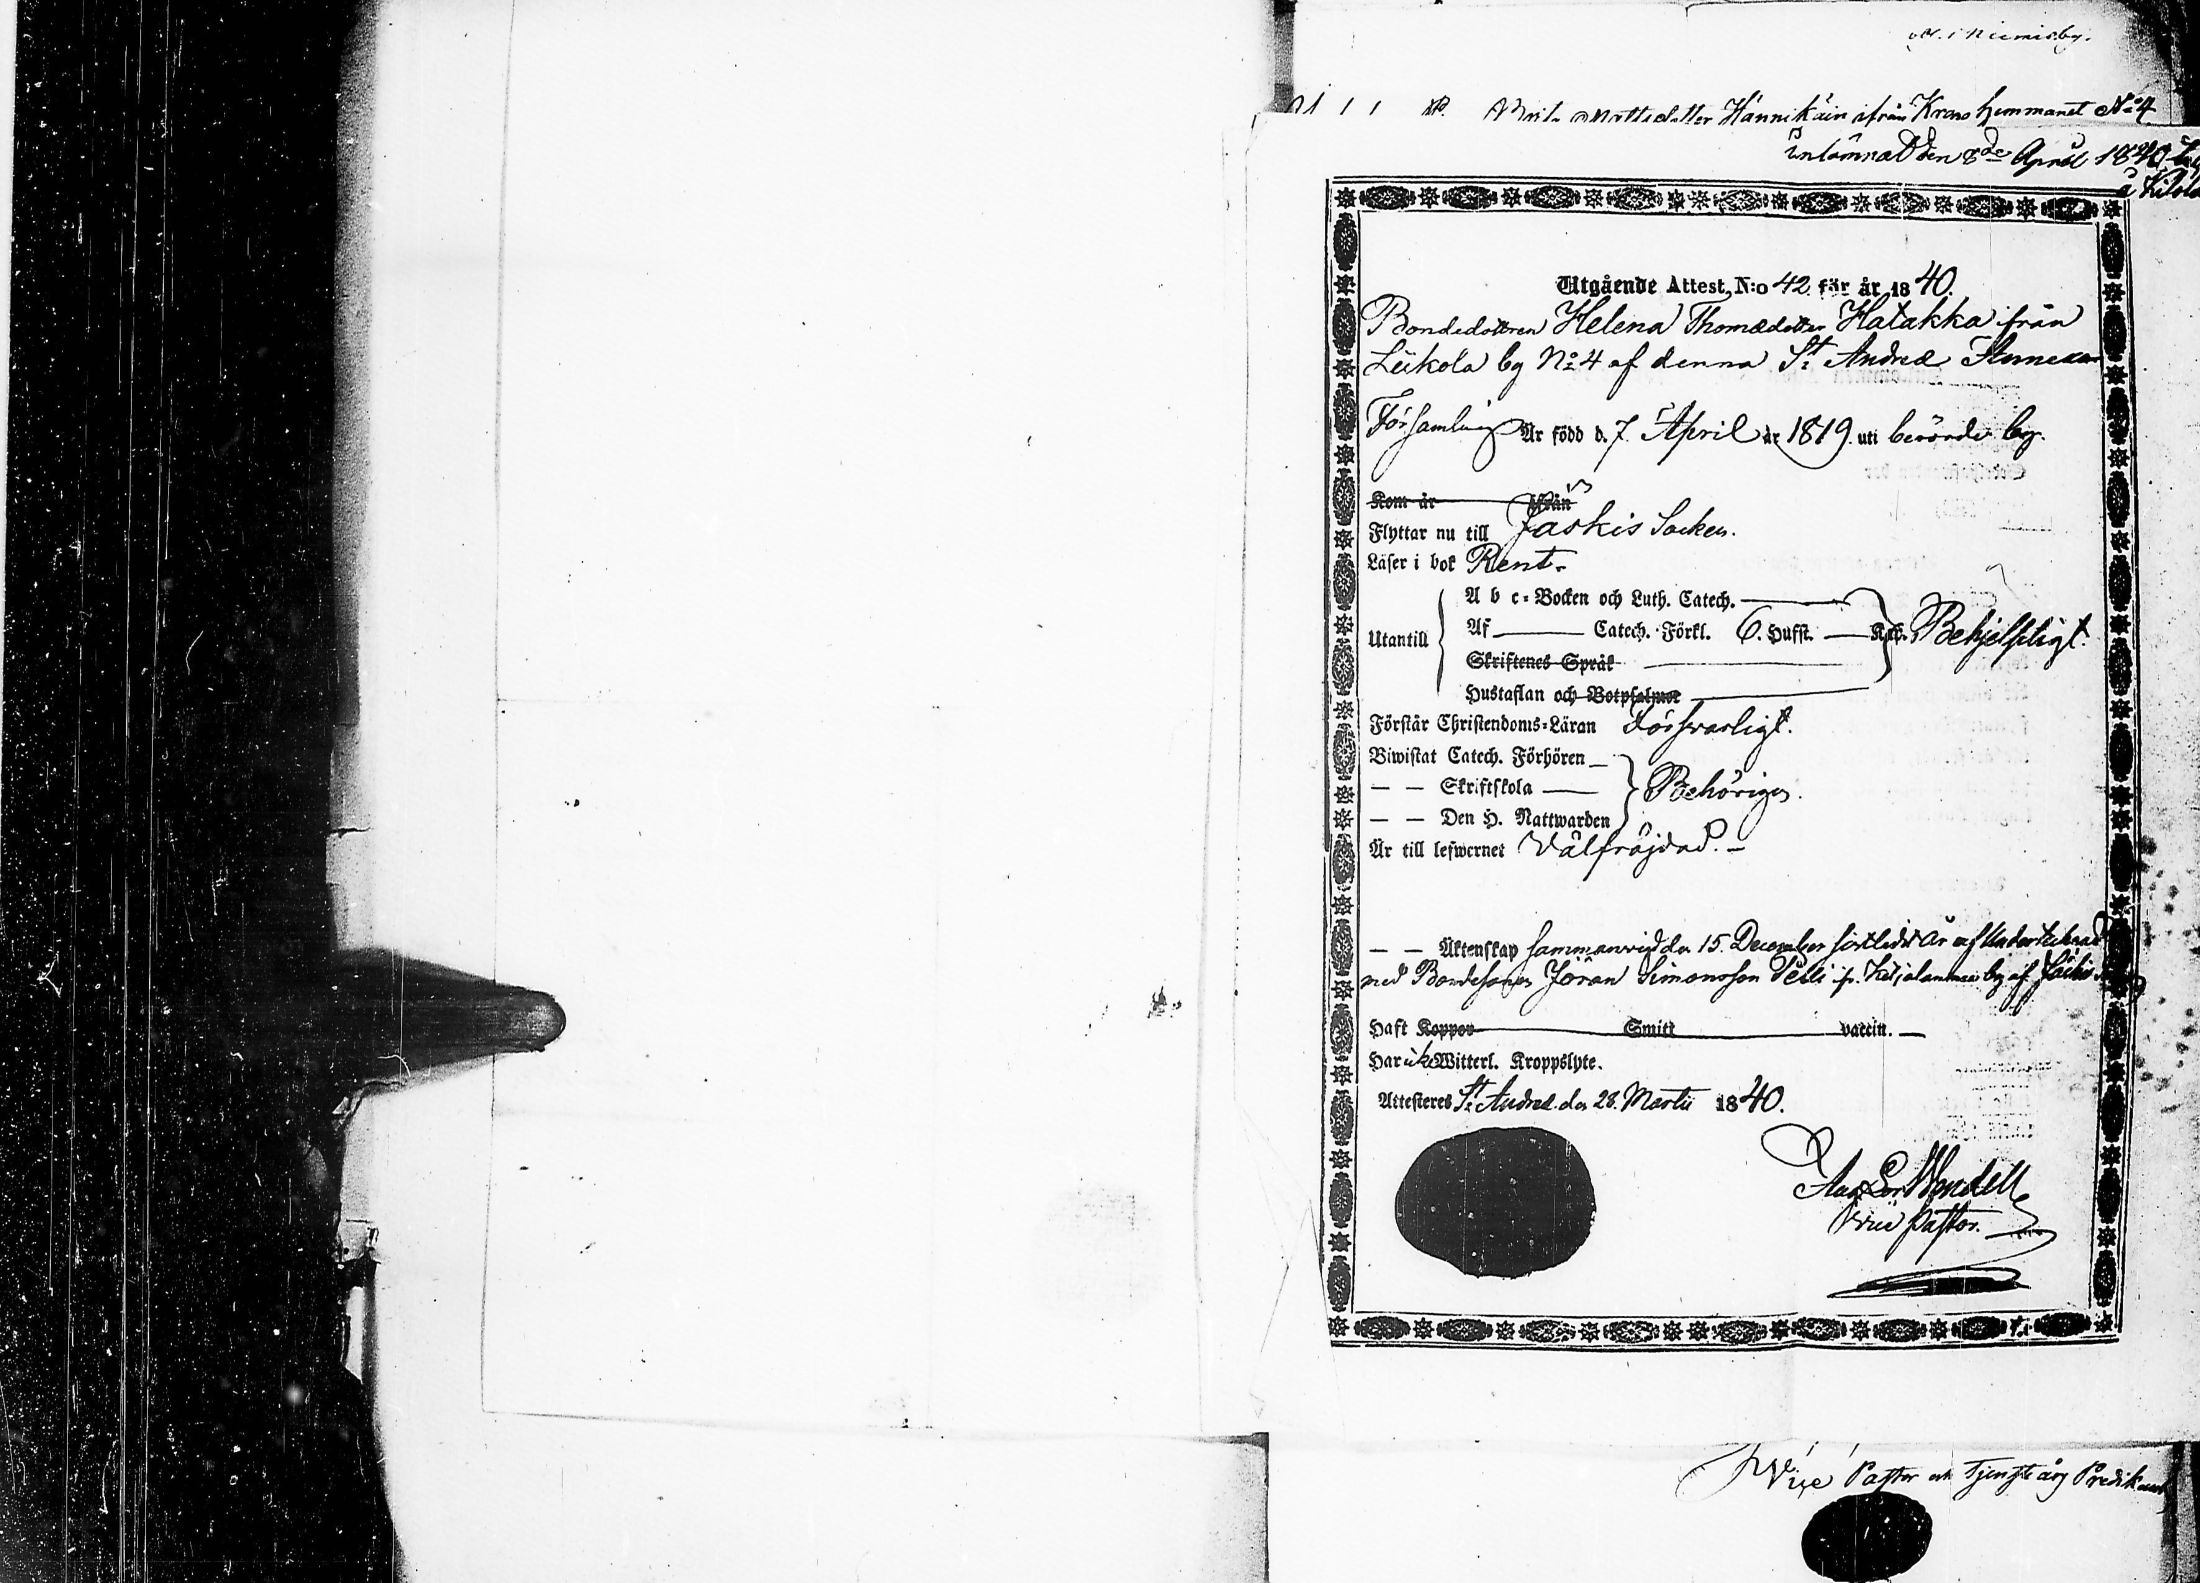 i Niemis by.
Hännikäin ifrån Krono hemmanet No 4
inlämnad den 8de April 1840
å Kilola
Utgående Attest, N:o 42 för år 1840.
Bondedottren Helena Thomædotter Hatakka från
Leikola by No 4 af denna St Andreæ
Församling Är född d. 7 April år 1819. uti berörde by.
Kom år ifrån
Flyttar nu till Jäskis Socken.
Läser i bok Rent.
A b c-Bocken och Luth. Catech.
Utantill Af Catech. Förkl. 6. Hufst. Behjelpligt.
Skriftenes Språk
Hustaflan och Botpsalmer
Förstår Christendoms-Läran Försvarligt.
Biwistat Catech. Förhören
— — Skriftskola — Behörigen.
— — Den H. Nattwarden
Är till lefwernet Välfräjdad. —
— — Äktenskap sammanvigd den 15. December sistledit År af Undertecknad
med Bondesonen Jöran Simonsson Pelli by af Jäskis
Haft Koppor Smitt vaccin. —
Har icke Witterl. Kroppslyte.
Attesteres St Andreæ den 28. Martii 1840.
Vice Pastor.
Vice Pastor och Predikant